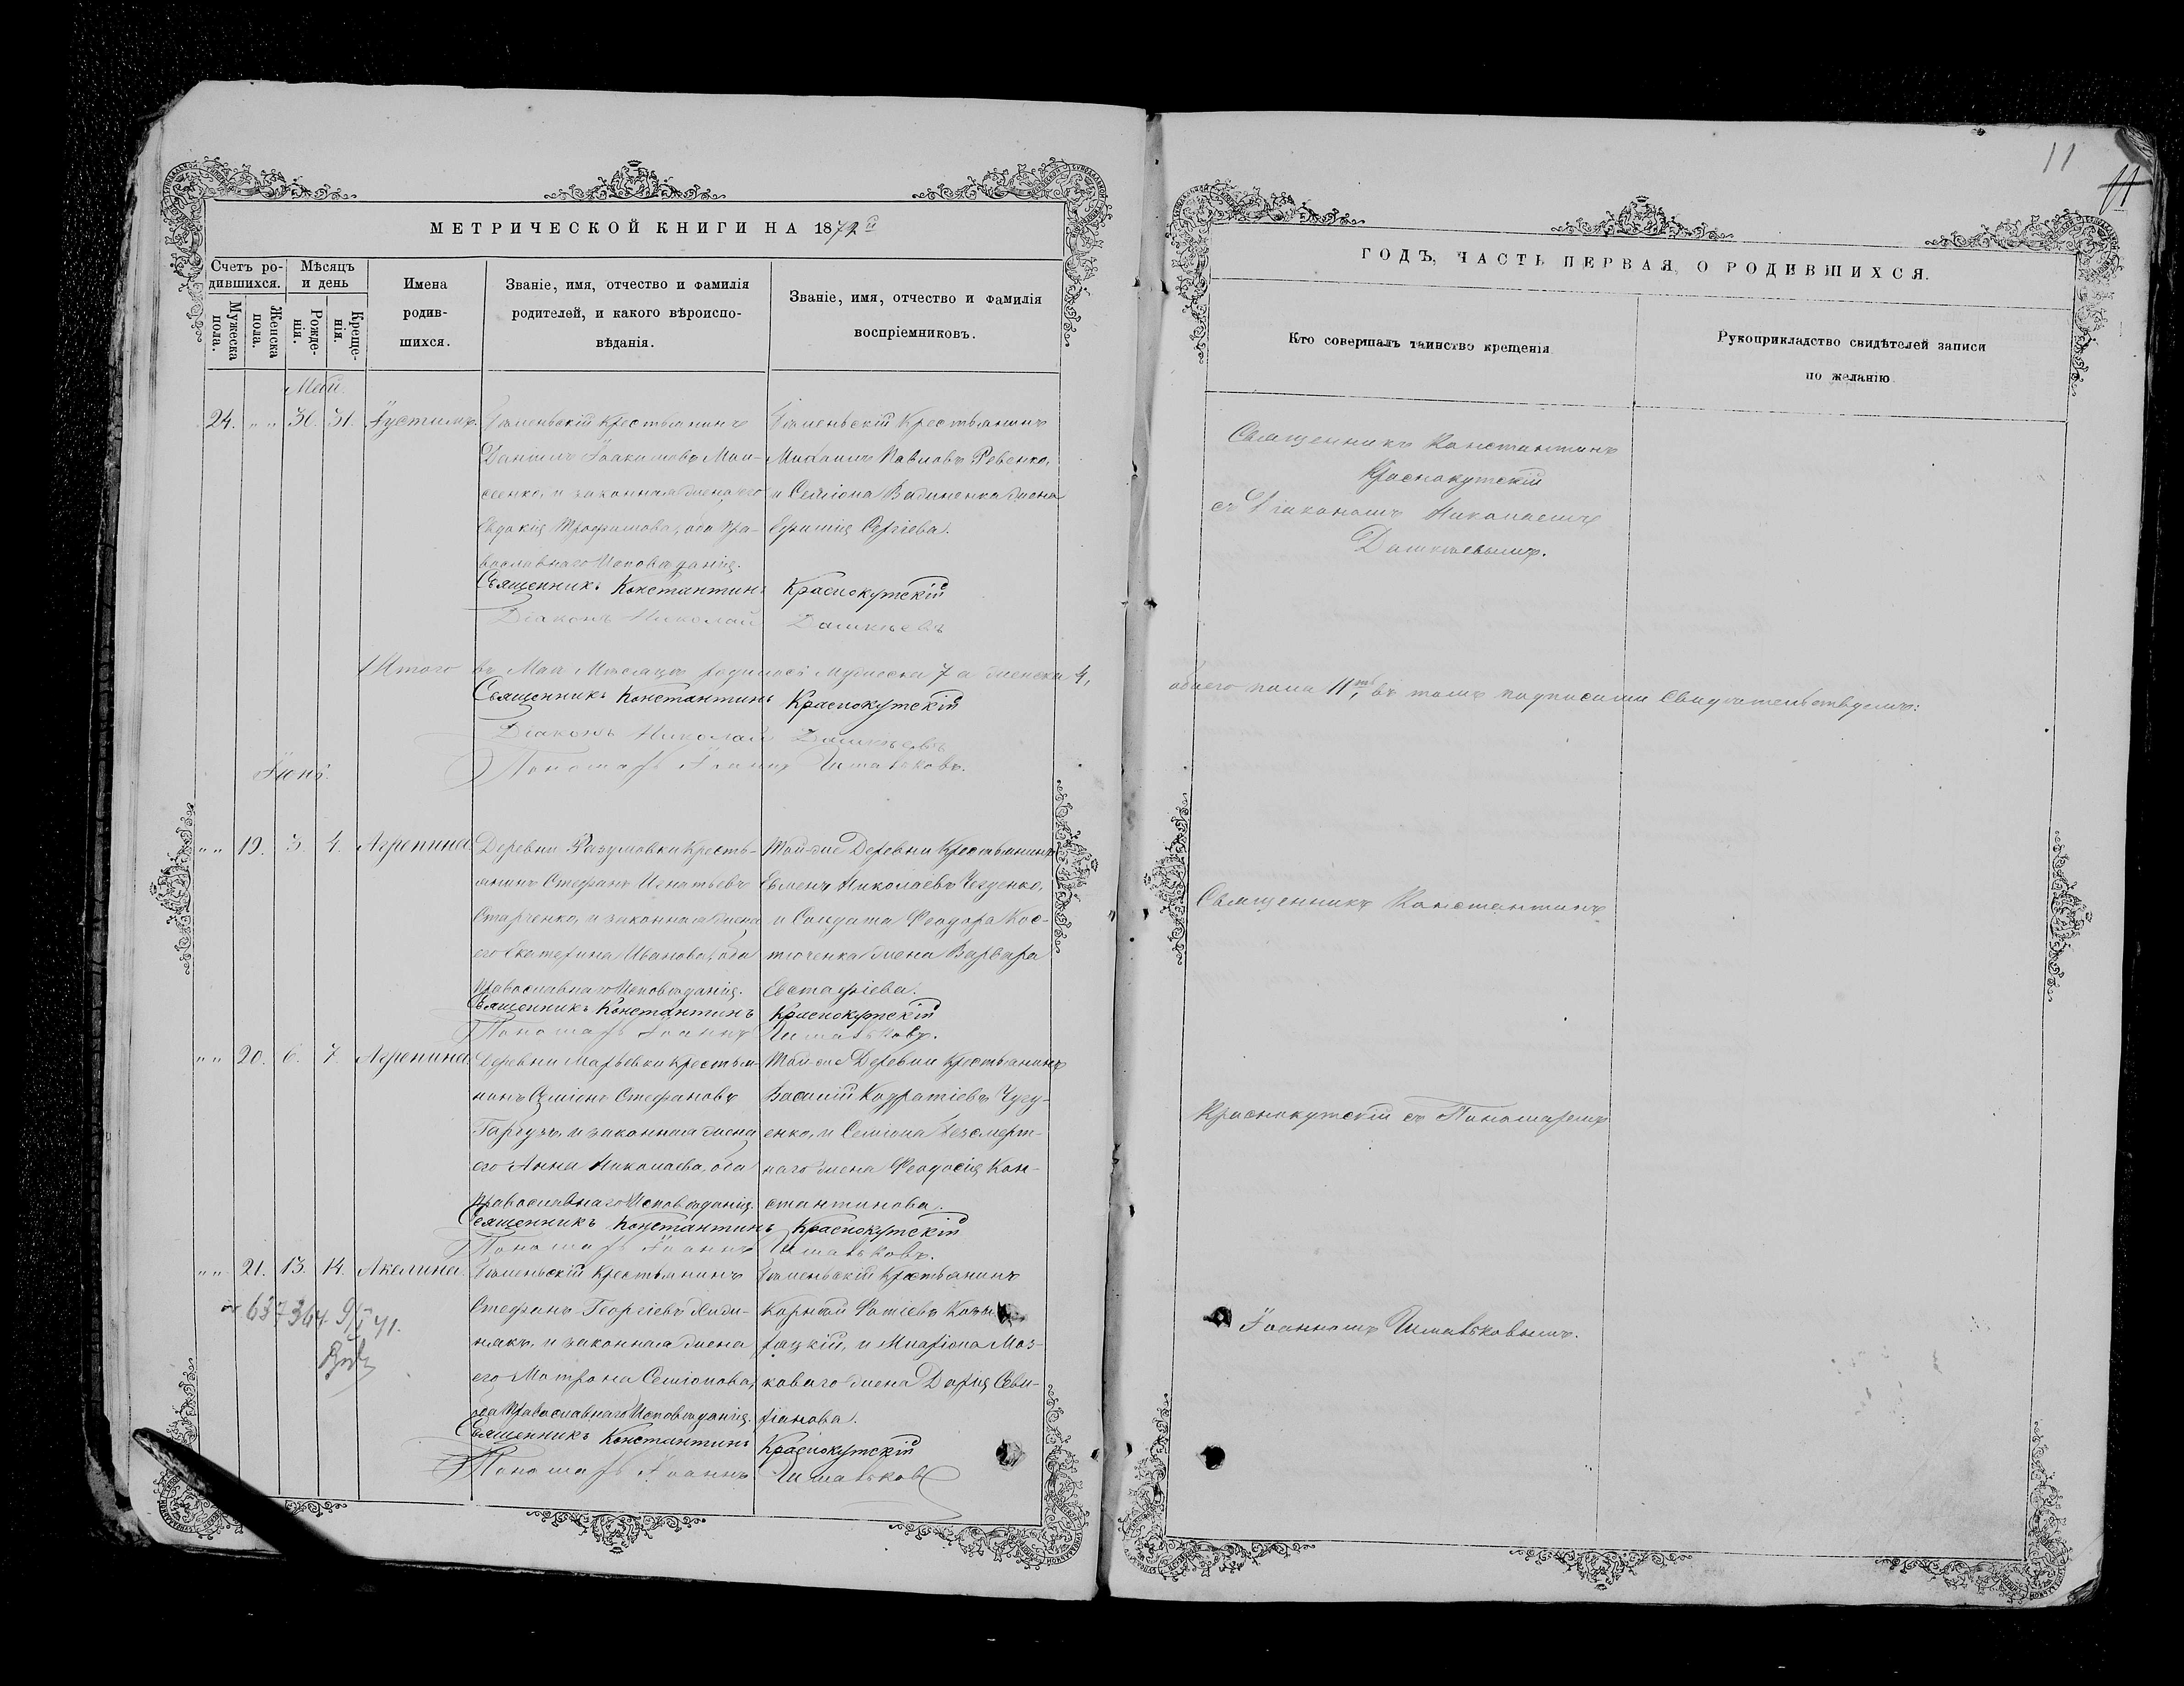 11
11
МЕТРИЧЕСКОЙ КНИГИ НА 1872й
Счетъ ро-
дившихся.
Мѣсяцъ
и день
Мужеска
пола.
Женска
пола.
Рожде-
нія.
Креще-
нія.
Имена
родив-
шихся.
Званіе, имя, отчество и фамилія
родителей, и какого вѣроиспо-
вѣданія.
Званіе, имя, отчество и фамилія
воспріемниковъ.
Май.
24. " " 30. 31. Іустимъ.
Крестьянинъ
Даніилъ Іоакимовъ Мои-
сеенко, и законная жена его
Евдокія Трофимова, оба пра-
вославнаго Исповѣданія.
Крестьянинъ
Михаилъ Павловъ Ревенко,
и Семіона жена
Сергіева.
Священникъ Константинъ Краснокутскій
Діаконъ Николай Дашкѣевъ
Итого въ Маѣ Мѣсяцѣ родилось мужеска 7 а женска 4,
Священникъ Константинъ Краснокутскій
Діаконъ Николай Дашкѣевъ
Пономарь Іоаннъ
Іюнь.
" " 19. 3. 4. Агрепина.
Деревни Разумовки Кресть-
янинъ Стефанъ Игнатьевъ
Старченко, и законная жена
его Екатерина Иванова, оба
православнаго Исповѣданія.
Той же Деревни Крестьянинъ
Евменъ Николаевъ
и Солдата Феодора Кос-
тюченка жена Варвара
Евстафіева.
Священникъ Константинъ Краснокутскій
Пономарь Іоаннъ
" " 20. 6. 7 Агрепина.
Деревни Марьевки Крестья-
нинъ Семіонъ Стефановъ
и законная жена
его Анна Николаева, оба
православнаго Исповѣданія.
Той же Деревни Крестьянинъ
Василій Кодратіевъ Чугу-
енко, и Семіона Безсмерт-
наго жена Феодосія Кон-
стантинова.
Священникъ Константинъ Краснокутскій
Пономарь Іоаннъ
" " 21. 13. 14. Акелина.
Крестьянинъ
Стефанъ Георгіевъ
и законная жена
его Матрона Семіонова,
оба Православнаго Исповѣданія.
Крестьянинъ
Корнѣй Фотіевъ
и Иларіона Моз-
коваго жена Дарія Севи-
ріанова.
637364
41.
Священникъ Константинъ Краснокутскій
Пономарь Іоаннъ
ГОДЪ, ЧАСТЬ ПЕРВАЯ, О РОДИВШИХСЯ.
Кто совершалъ таинство крещенія
Рукоприкладство свидѣтелей записи
по желанію
Священникъ Константинъ
Краснокутскій
съ Діакономъ Николаемъ
Дашкѣевымъ.
обоего пола 11ть, въ томъ подписами Свидѣтельствуемъ:
Священникъ Константинъ
Краснокутскій съ Пономаремъ
Іоанномъ